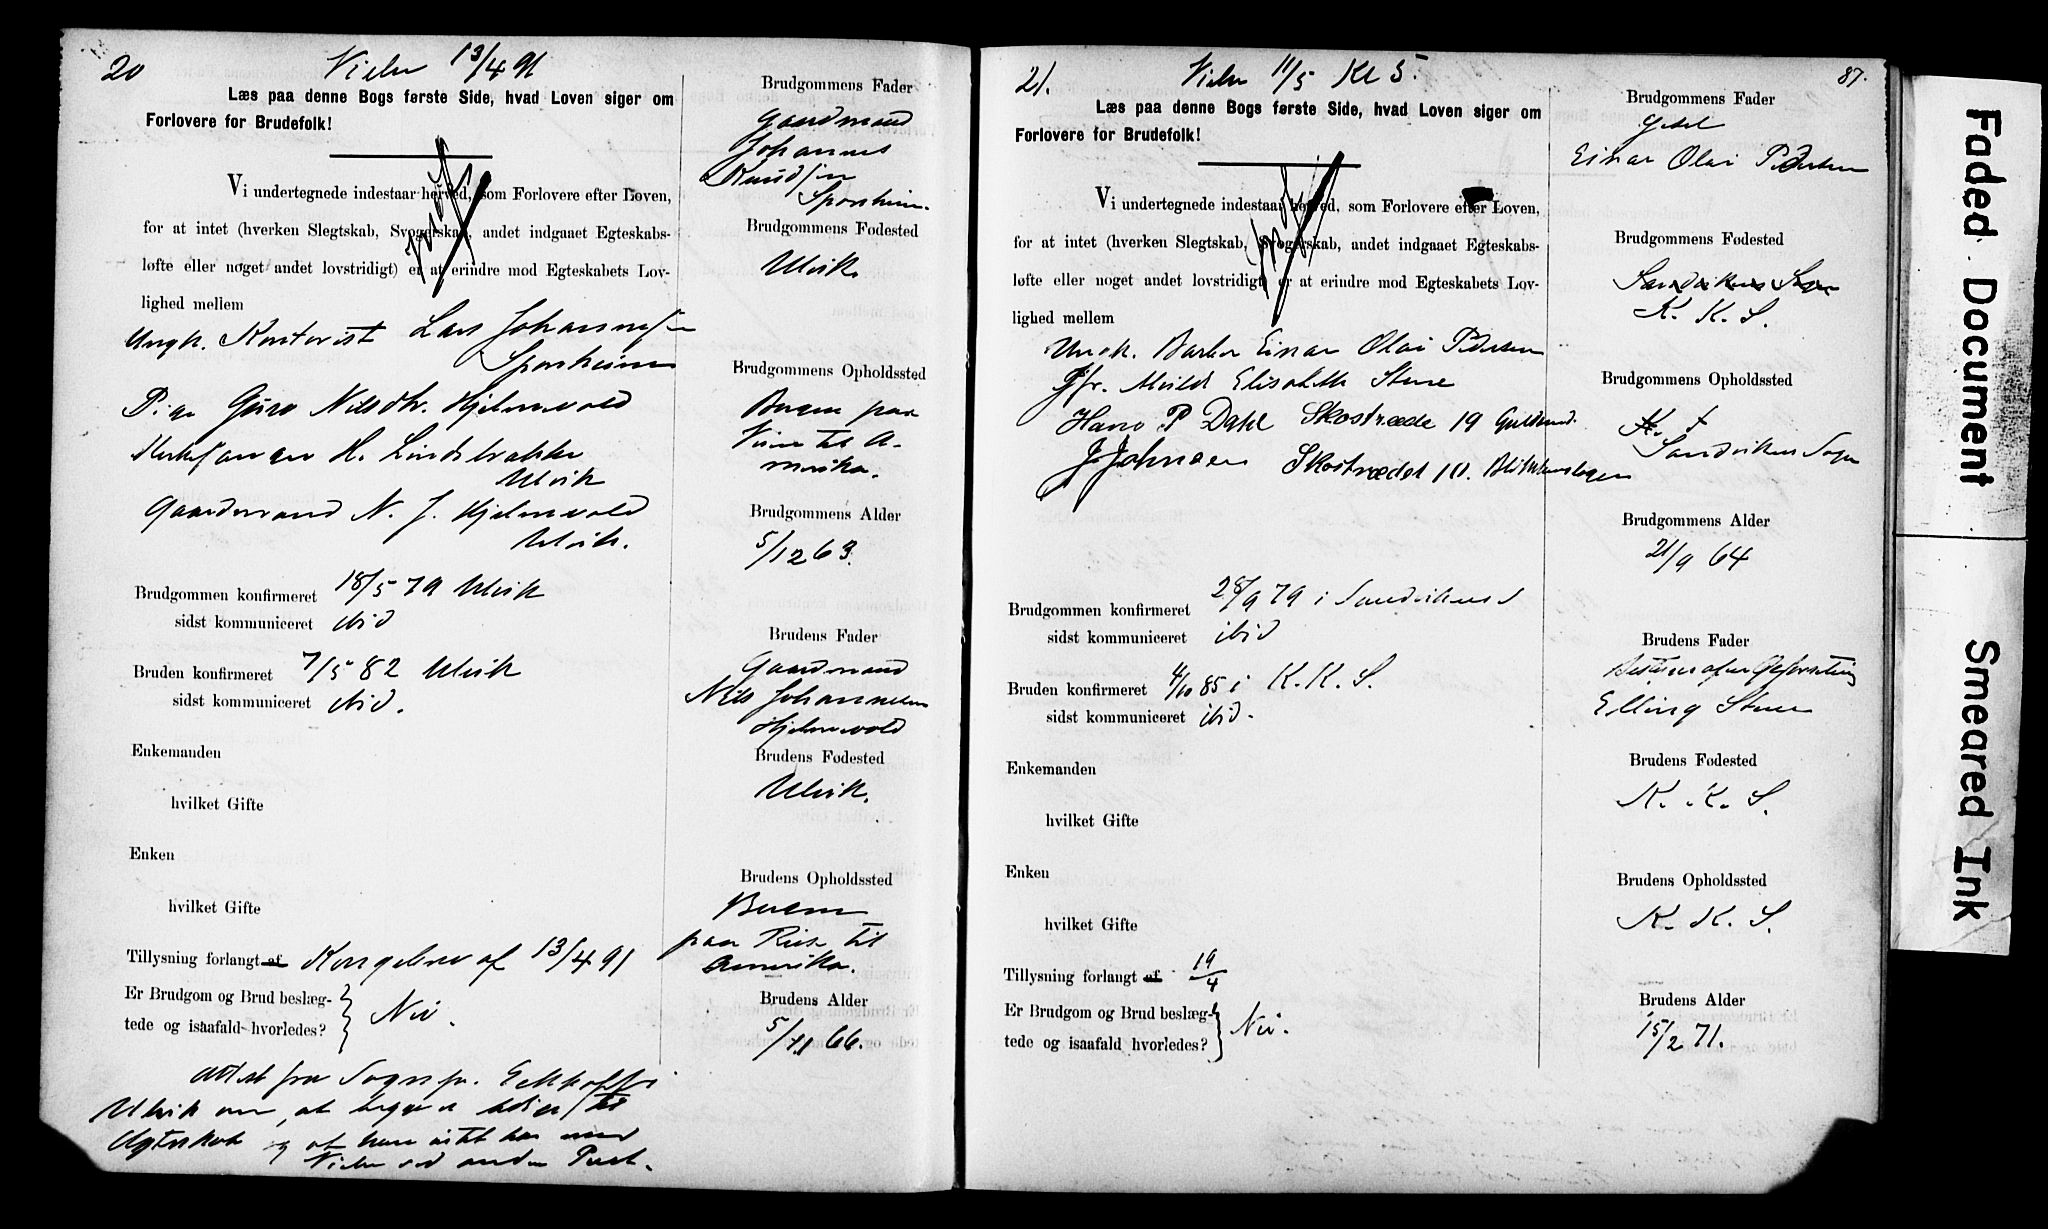 20
Vielse 13/4 91
Læs paa denne Bogs første Side, hvad Loven siger om
Forlovere for Brudefolk!
Vi undertegnede indestaar herved, som Forlovere efter Loven,
for at intet (hverken Slegtskab, Svogerskab, andet indgaaet Egteskabs-
løfte eller noget andet lovstridigt) er at erindre mod Egteskabets Lov-
lighed mellem
Ungk. Kontorist Lars Johannesen
Sponheim
Pige Guro Nilsdtr. Hjelmevold
H. Lindebrække
Ulvik
Gaardmand N. J. Hjelmevold
Ulvik.
Brudgommen konfirmeret 18/5 79 Ulvik
sidst kommuniceret ibid
Bruden konfirmeret 7/5 82 Ulvik
sidst kommuniceret ibid.
Enkemanden
hvilket Gifte
Enken
hvilket Gifte
Tillysning forlangt af Kongebrev af 13/4 91
Er Brudgom og Brud beslæg-
tede og isaafald hvorledes? Nei.
Attest fra Sognepr. i
Ulvik om, at
Egteskab og at
Vielse ved anden Præst.
Brudgommens Fader
Gaardmand
Johannes
Knudsen
Sponheim.
Brudgommens Fødested
Ulvik
Brudgommens Opholdssted
Bergen paa
Reise til A-
merika.
Brudgommens Alder
5/12 63.
Brudens Fader
Gaardmand
Nils Johannesen
Hjelmevold
Brudens Fødested
Ulvik.
Brudens Opholdssted
Bergen
paa Reise til
Amerika.
Brudens Alder
5/11 66.
21.
Vielse 11/5 Kl 5.
87.
Læs paa denne Bogs første Side, hvad Loven siger om
Forlovere for Brudefolk!
Vi undertegnede indestaar herved, som Forlovere efter Loven,
for at intet (hverken Slegtskab, Svogerskab, andet indgaaet Egteskabs-
løfte eller noget andet lovstridigt) er at erindre mod Egteskabets Lov-
lighed mellem
Ungk. Barber Einar Olai Pedersen
Jfr. Elisabeth Stene
Hans P Dahl Skostræde 19 Guldsmed.
J Johnsen Skostrædet 10.
Brudgommen konfirmeret 28/9 79 i Sandvikens S
sidst kommuniceret ibid
Bruden konfirmeret 4/10 85 i K. K. S.
sidst kommuniceret ibid.
Enkemanden
hvilket Gifte
Enken
hvilket Gifte
Tillysning forlangt af 19/4
Er Brudgom og Brud beslæg-
tede og isaafald hvorledes? Nei.
Brudgommens Fader
Einar Olai Pedersen
Brudgommens Fødested
Sandvikens Sogn
K. K. S.
Brudgommens Opholdssted
Sandvikens Sogn
Brudgommens Alder
21/9 64
Brudens Fader
Elling Stene
Brudens Fødested
K. K. S.
Brudens Opholdssted
K. K. S.
Brudens Alder
15/2 71.
Faded Document
Smeared Ink